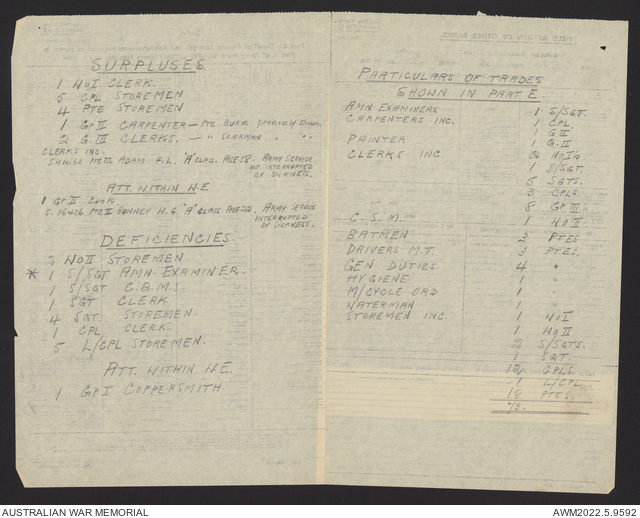 SURPLUSES
1 WO I CLERK.
5 CPL STOREMEN
4 PTE STOREMEN
1 GP II CARPENTER — PTE BURK previously shown.
2 G. III CLERKS. — " SCARMAN " "
CLERKS INC.
PTE III ADAM F.L. "A" CLASS. AGE 38. ARMY SERVICE
NOT INTERRUPTED
BY SICKNESS.
ATT. WITHIN W.E
1 GP II COOK.
PTE II BONNEY H.G. "A" CLASS AGE ARMY SERVICE
INTERRUPTED
BY SICKNESS.
DEFICIENCIES.
2 WO II STOREMEN
* 1 S/SGT AMN EXAMINER.
1 S/SGT C.Q.M.S.
1 SGT CLERK
4 SGT. STOREMEN.
1 CPL CLERK
5 L/CPL STOREMEN.
ATT. WITHIN W.E.
1 GP I COPPERSMITH
FIELD RETURN OF OTHER RANKS
PARTICULARS OF TRADES
SHOWN IN PART E.
AMN EXAMINERS 1 S/SGT.
CARPENTERS INC. 1 CPL
1 G.II
PAINTER 1 G.II
CLERKS INC. 2 WO I's.
1 S/SGT.
5 SGTS.
3 CPLS.
8 GP III
C.S.M. 1 WO II
BATMEN 2 PTES
DRIVERS M.T. 3 PTES.
GEN DUTIES 4 "
HYGIENE 1 "
M/CYCLE ORD 1 "
WATERMAN 1 "
STOREMEN INC. 1 WO I
1 WO II
2 S/SGTS.
1 SGT.
12 CPLS.
1 L/CPL
18 PTES.
73.
AUSTRALIAN WAR MEMORIAL
AWM2022.5.9592